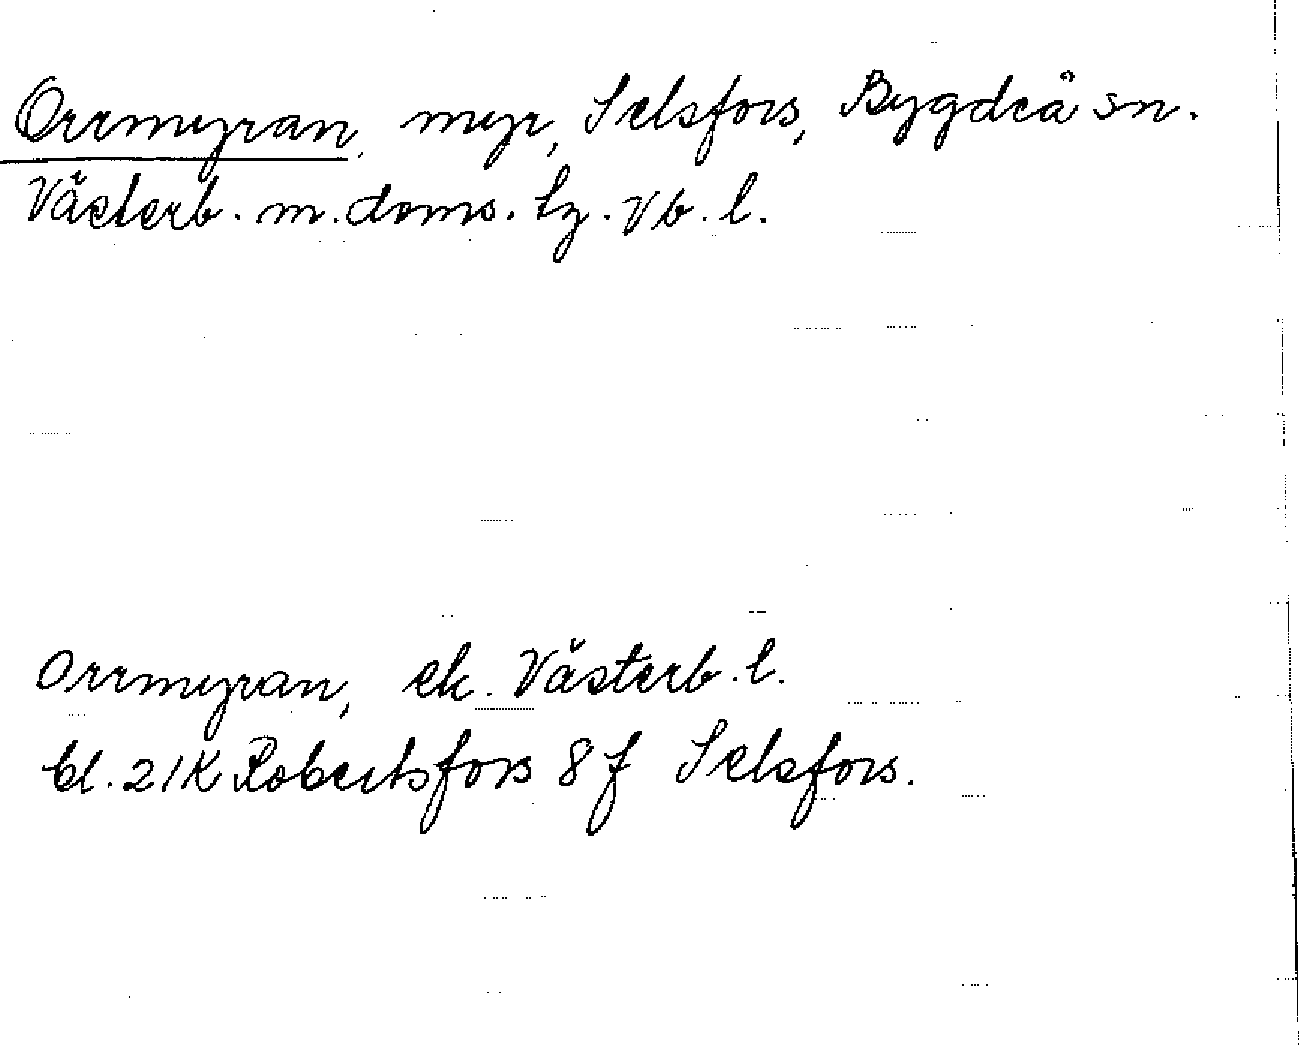 Orrmyran, myr, Selsfors, Bygdeå sn.
Västerb. m. doms. tg. Vb. l.
Orrmyran, ek. Västerb. l.
bl. 21K Robertsfors 8f Selsfors.